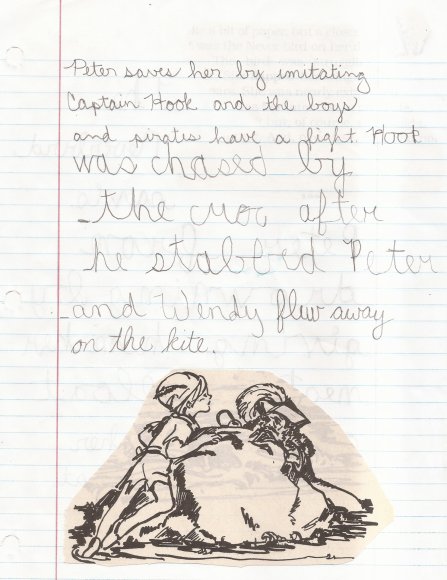 Peter saves her by imitating
Captain Hook and the boys
and pirates have a fight. Hook
was chased by
the croc after
he stabbed Peter
and Wendy flew away
on the kite.